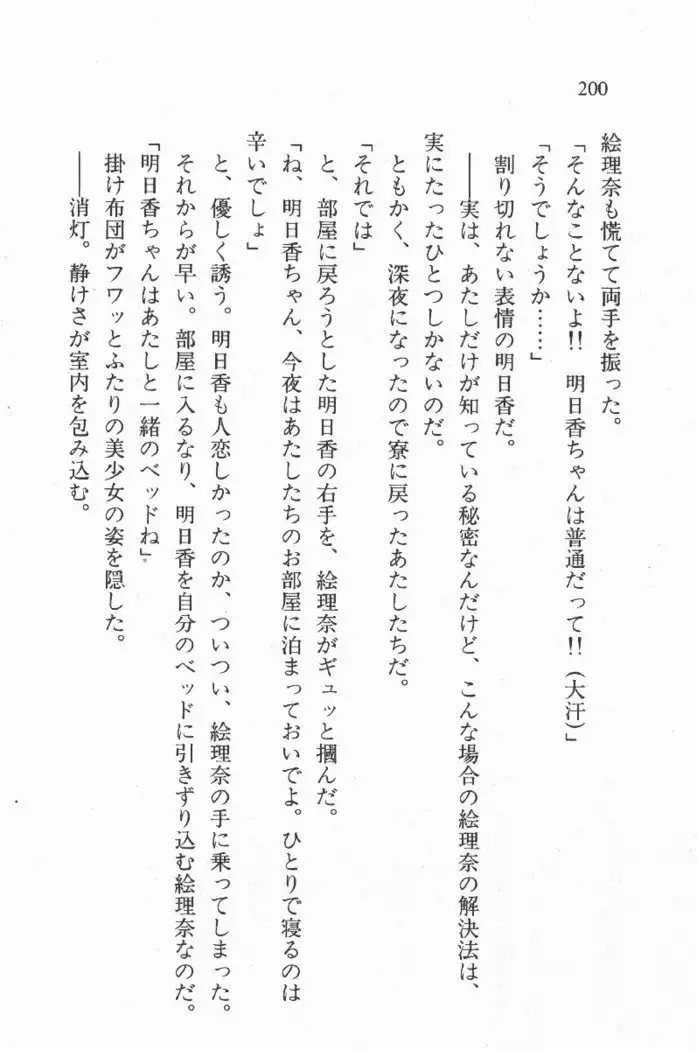 200
絵理奈も慌てて両手を振った。
「そんなことないよ!! 明日香ちゃんは普通だって!!(大汗)」
「そうでしょうか……」
割り切れない表情の明日香だ。
――実は、あたしだけが知っている秘密なんだけど、こんな場合の絵理奈の解決法は、
実にたったひとつしかないのだ。
ともかく、深夜になったので寮に戻ったあたしたちだ。
「それでは」
と、部屋に戻ろうとした明日香の右手を、絵理奈がギュッと摑んだ。
「ね、明日香ちゃん、今夜はあたしたちのお部屋に泊まっておいでよ。ひとりで寝るのは
辛いでしょ」
と、優しく誘う。明日香も人恋しかったのか、ついつい、絵理奈の手に乗ってしまった。
それからが早い。部屋に入るなり、明日香を自分のベッドに引きずり込む絵理奈なのだ。
「明日香ちゃんはあたしと一緒のベッドね」
掛け布団がフワッとふたりの美少女の姿を隠した。
――消灯。静けさが室内を包み込む。